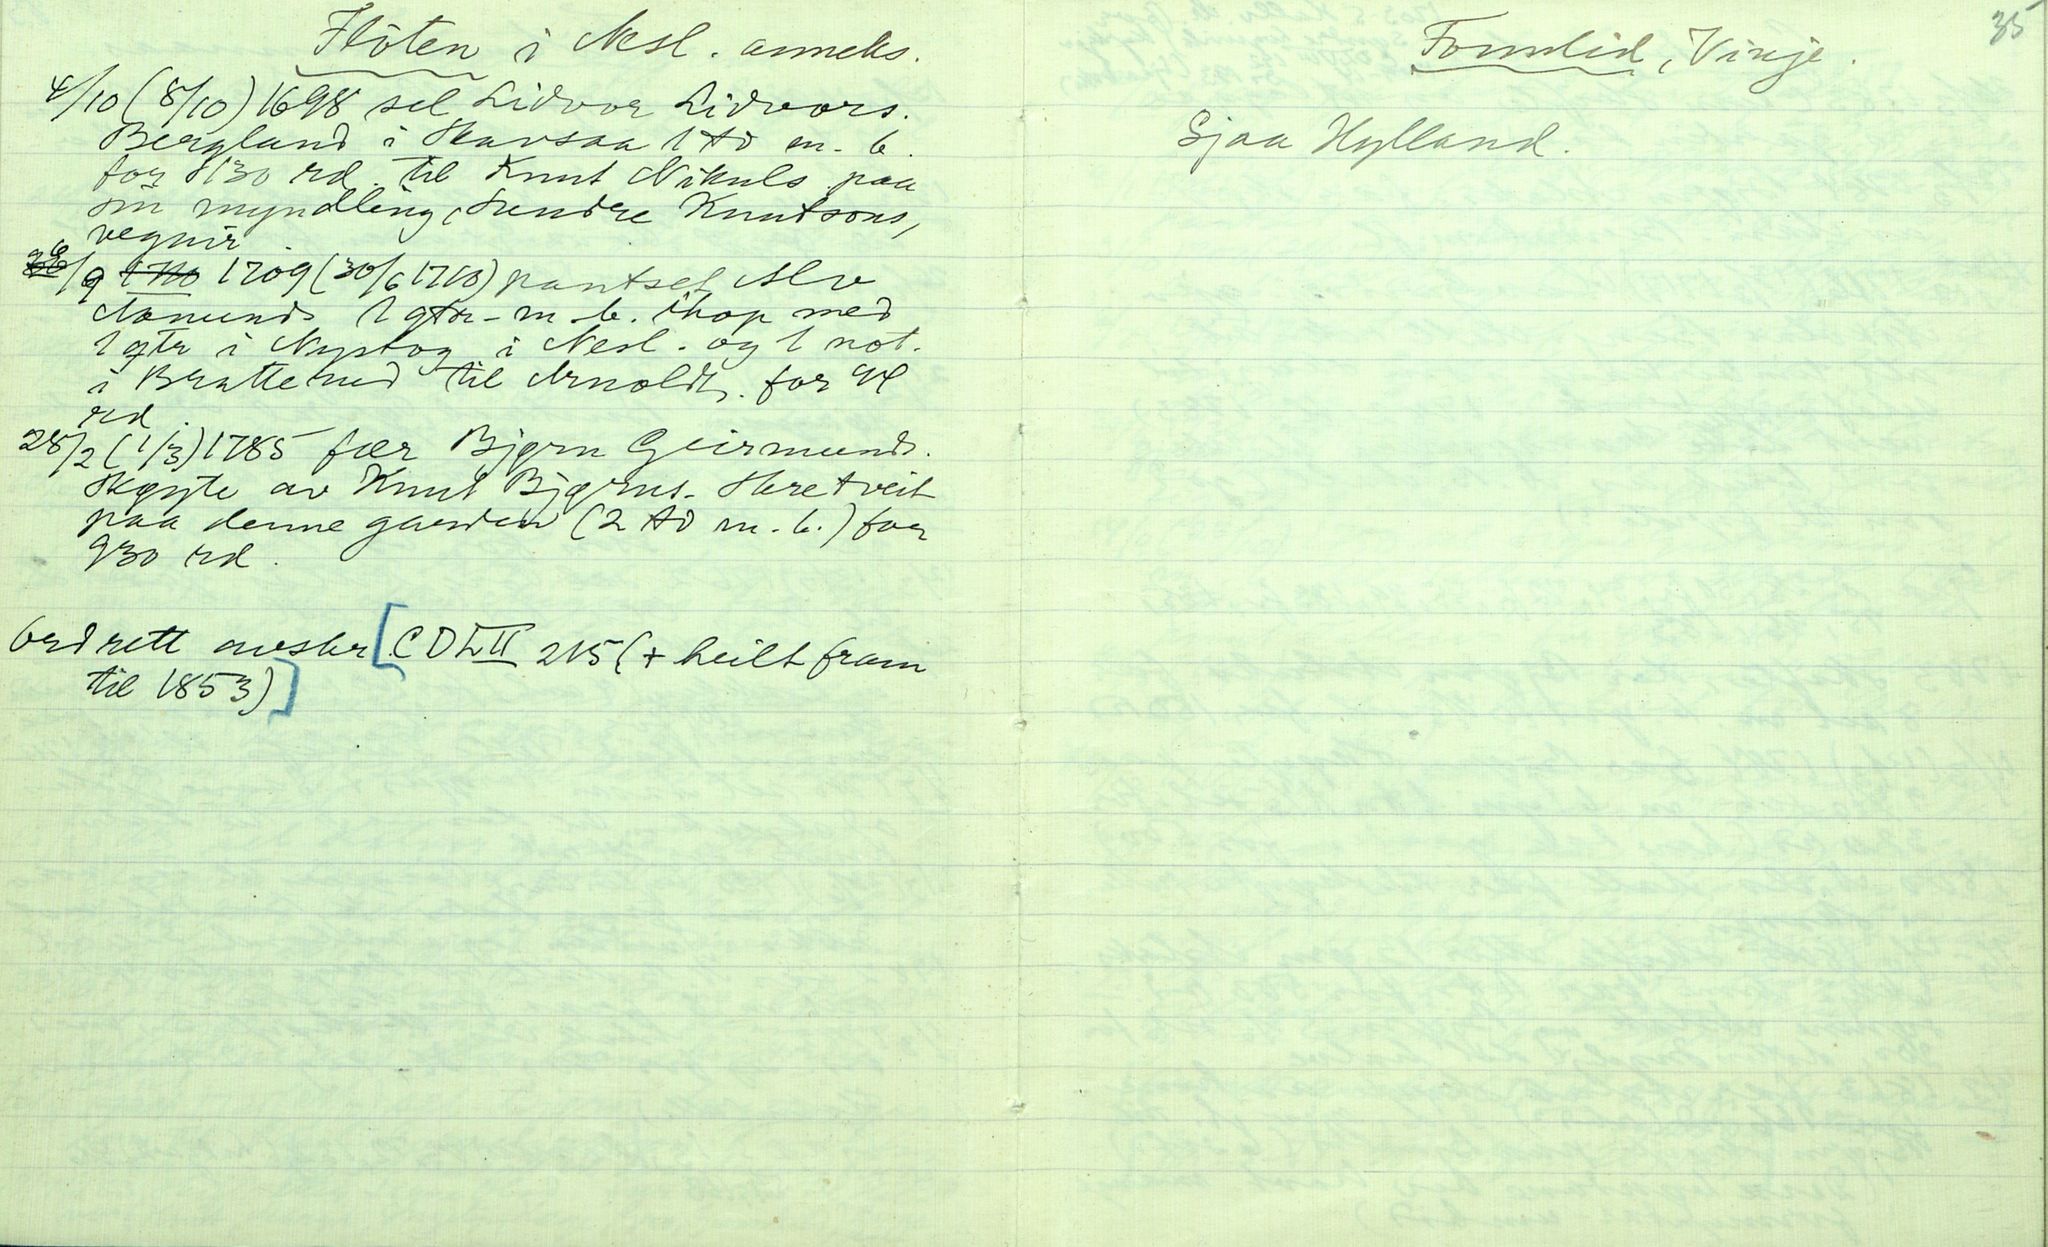 Flöten i Nesl. anneks.
4/10 (8/10) 1698 sel Lidvor Lidvors.
Bergland i Skavsaa 1 td m. b.
for 130 rd. til Knut Nikuls paa
sin myndling, Sundre Knutsons,
vegnir
26/9 1709 (30/6 1710) pantset Alv
Aamunds 1 qtr. m. b. ihop med
1 qtr i Nystog i Nesl. og 1 not.
i Bratterud til Arnoldt. for 94
rd.
28/2 (1/3) 1785 fær Bjørn Geirmunds.
Skøyte av Knut Bjørns. Haretveit
paa denne garden (2 td m. b.) for
930 rd.
Ordrett avskr [CDL II 215 (+ heilt fram
til 1853)]
35
Fomlid, Vinje.
Sjaa Hylland.